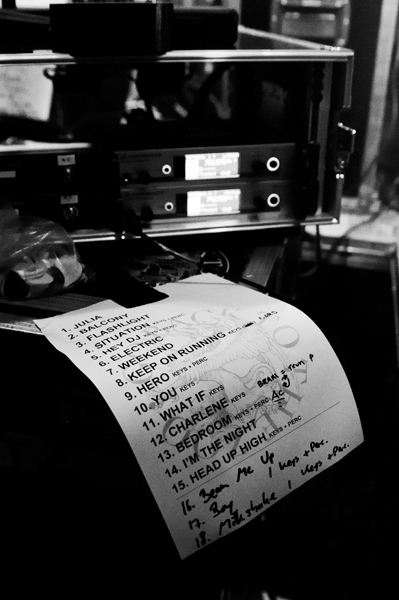 1. JULIA
2. BALCONY
3. FLASHLIGHT
4. SITUATION KEYS + PERC
5. HEY DJ KEYS + PERC
6. ELECTRIC
7. WEEKEND
8. KEEP ON RUNNING KEYS
9. HERO KEYS + PERC
10. YOU KEYS
11. WHAT IF KEYS
12. CHARLENE KEYS
13. BEDROOM KEYS + PERC AC
14. I'M THE NIGHT
15. HEAD UP HIGH KEYS + PERC
16. Beam Me Up
17. Boy 1 Keys + Perc.
18. Milkshake 1 Keys + Perc.